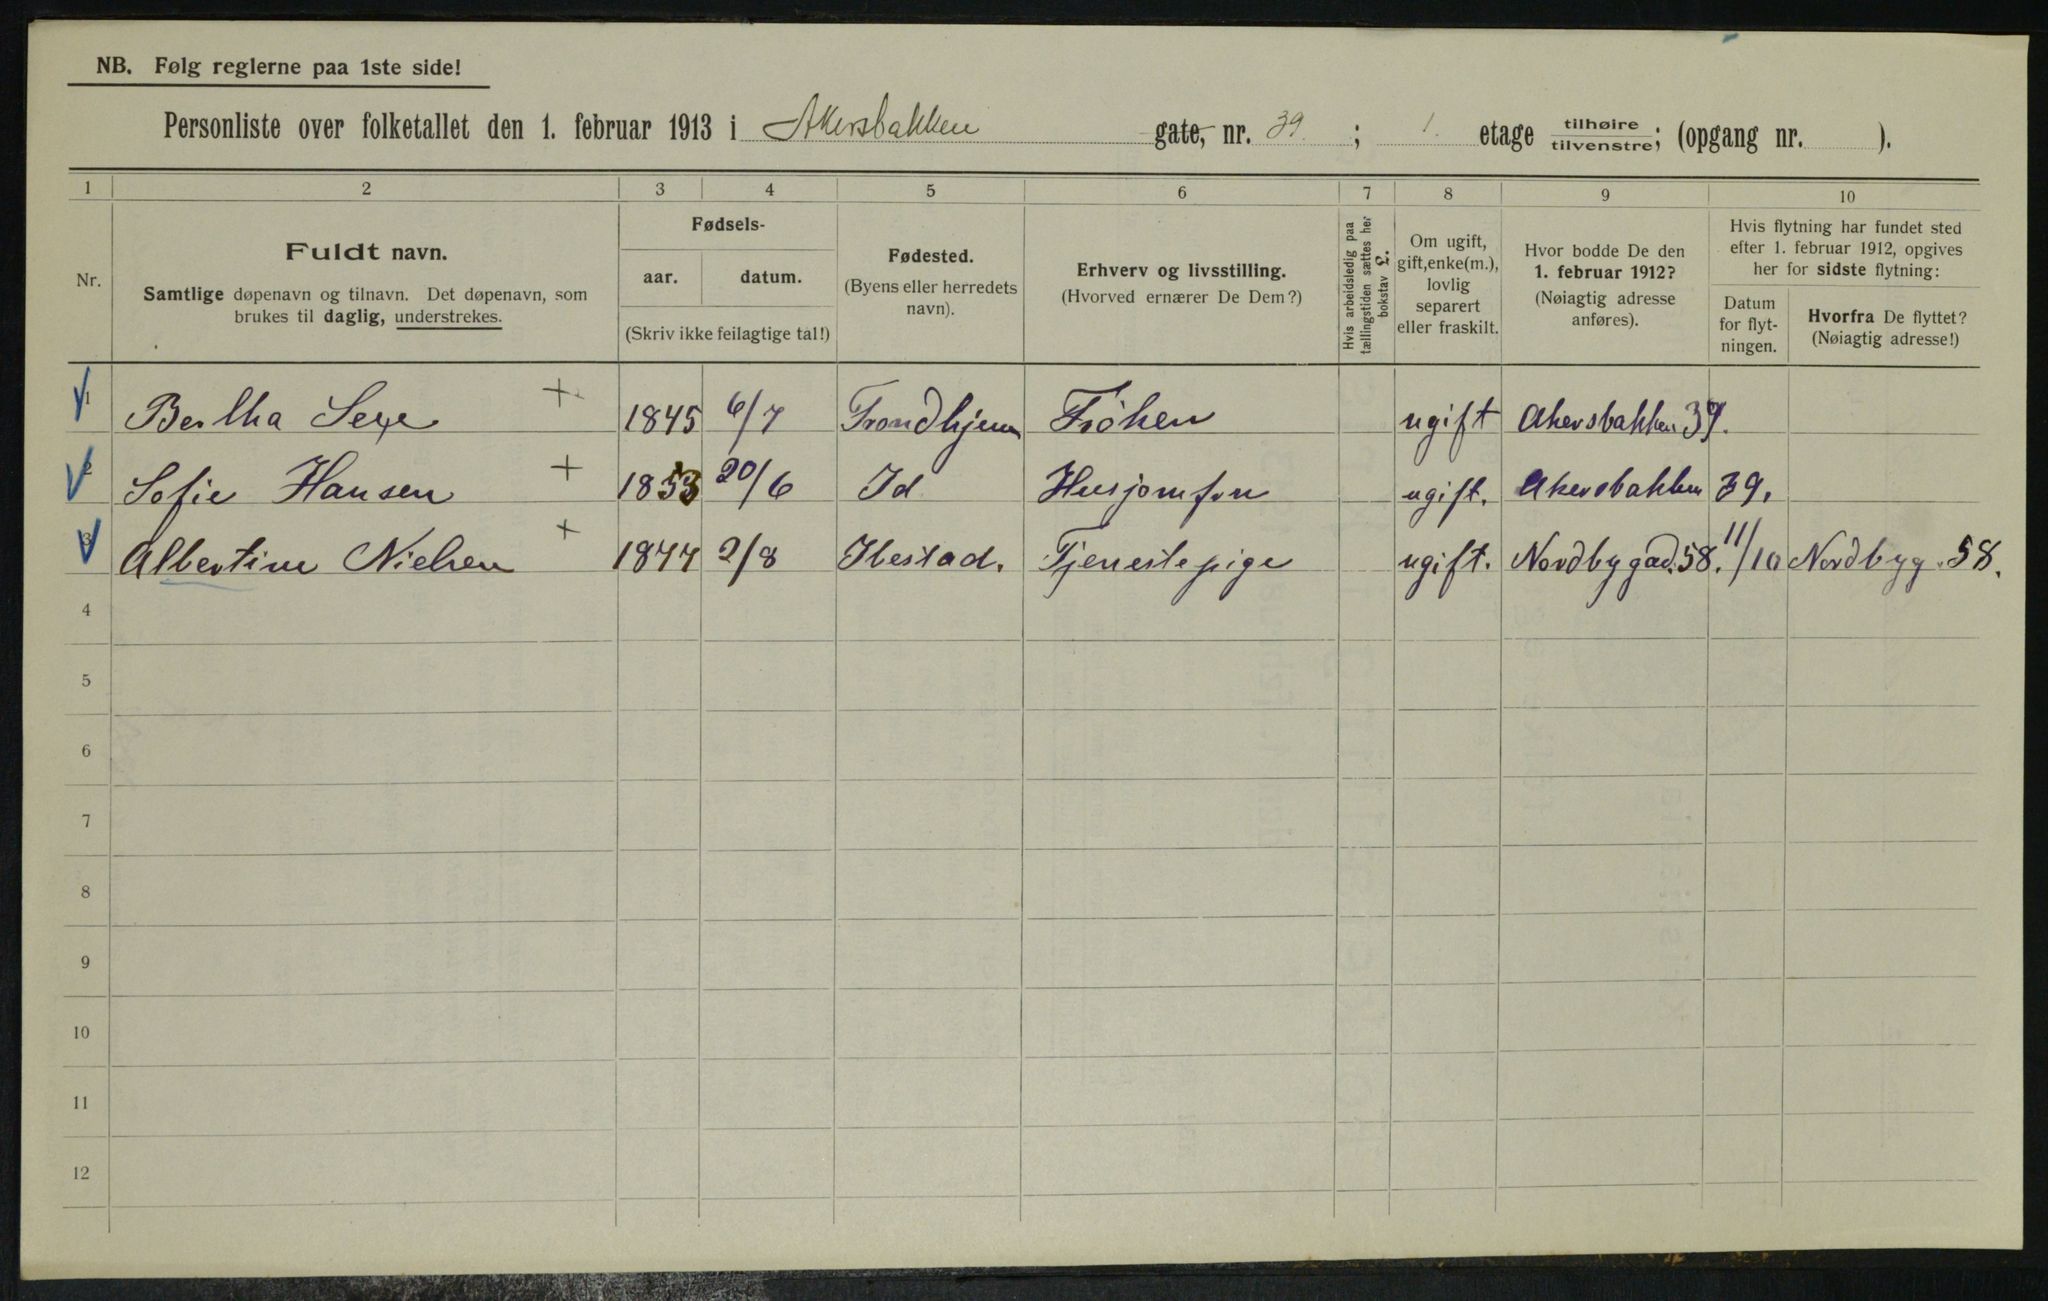 NB. Følg reglerne paa 1ste side!
Personliste over folketallet den 1. februar 1913 i Akersbakken gate, nr. 39. ; 1. etage tilhøire tilvenstre; (opgang nr. ).
1 2 3 4 5 6 7 8 9 10
Nr.
Fuldt navn.
Samtlige døpenavn og tilnavn. Det døpenavn, som
brukes til daglig, understrekes.
Fødsels-
aar. datum.
(Skriv ikke feilagtige tal!)
Fødested.
(Byens eller herredets
navn).
Erhverv og livsstilling.
(Hvorved ernærer De Dem?)
Hvis arbeidsledig paa
tællingstiden sættes her
bokstav L.
Om ugift,
gift, enke(m.),
lovlig
separert
eller fraskilt.
Hvor bodde De den
1. februar 1912?
(Nøiagtig adresse
anføres).
Hvis flytning har fundet sted
efter 1. februar 1912, opgives
her for sidste flytning:
Datum
for flyt-
ningen.
Hvorfra De flyttet?
(Nøiagtig adresse!)
1 Bertha Sexe + 1845 6/7 Trondhjem Fröken ugift Akersbakken 39.
2 Sofie Hansen + 1853 20/6 Id Husjomfru ugift. Akersbakken 39.
3 Albertine Nielsen + 1877 2/8 Ibestad. Tjenestepige ugift. Nordbygad. 58. 11/10 Nordbyg. 58.
4
5
6
7
8
9
10
11
12